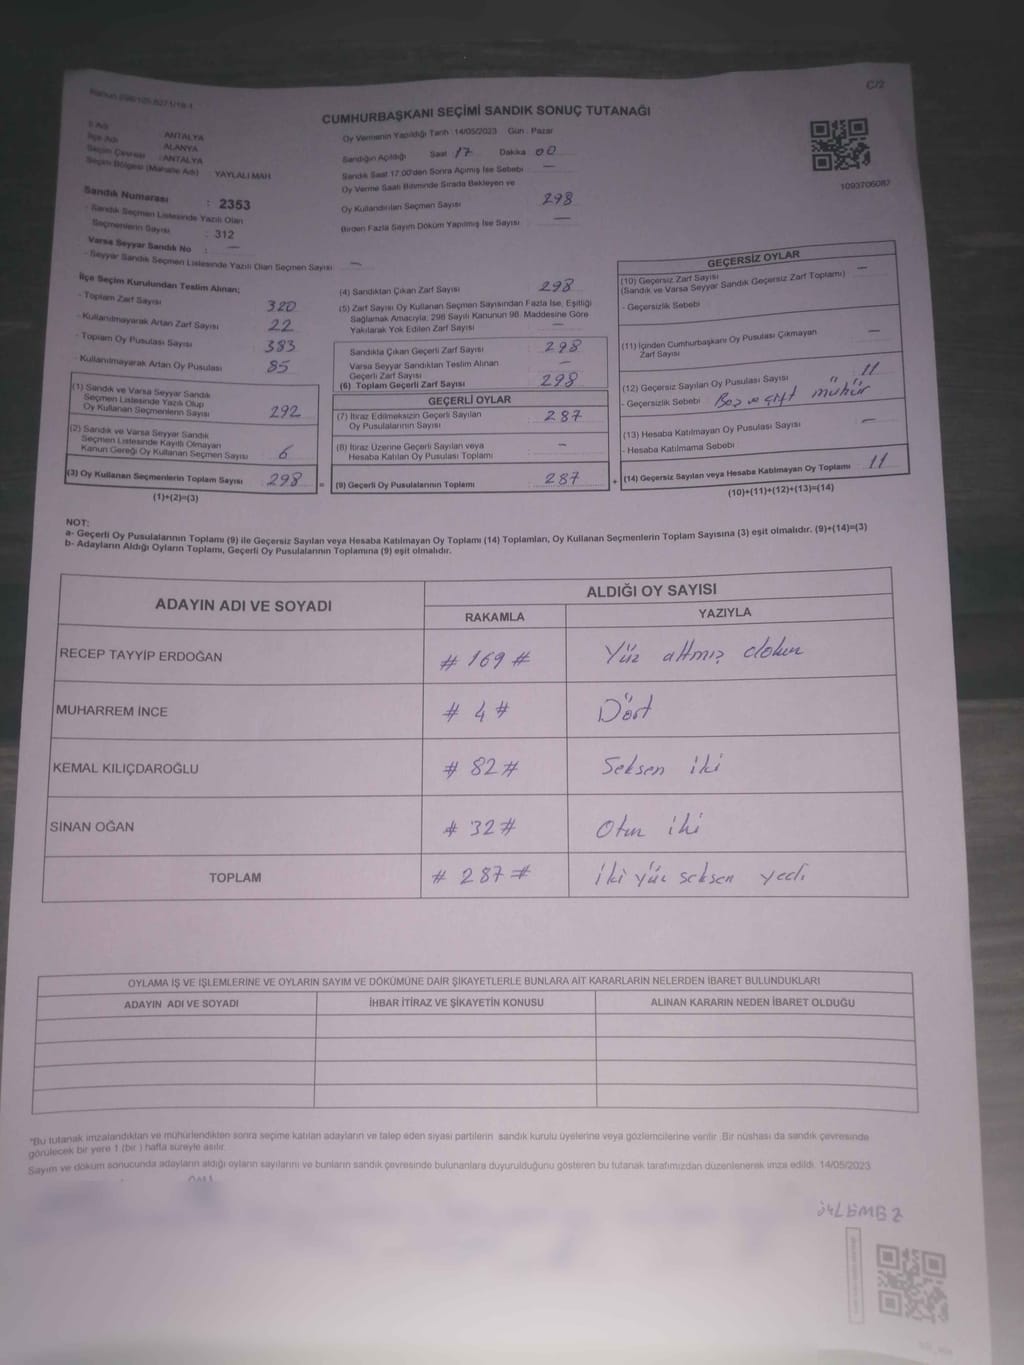 C/2
CUMHURBAŞKANI SEÇİMİ SANDIK SONUÇ TUTANAĞI
İl Adı ANTALYA
İlçe Adı ALANYA
Seçim Çevresi : ANTALYA
Seçim Bölgesi (Mahalle Adı) YAYLALI MAH
Sandık Numarası : 2353
- Sandık Seçmen Listesinde Yazılı Olan
Seçmenlerin Sayısı : 312
Varsa Seyyar Sandık No : —
- Seyyar Sandık Seçmen Listesinde Yazılı Olan Seçmen Sayısı —
Oy Vermenin Yapıldığı Tarih : 14/05/2023 Gün : Pazar
Sandığın Açıldığı Saat 17 Dakika 00
Sandık Saat 17.00'den Sonra Açılmış İse Sebebi —
Oy Verme Saati Bitiminde Sırada Bekleyen ve
Oy Kullandırılan Seçmen Sayısı 298
Birden Fazla Sayım Döküm Yapılmış İse Sayısı —
1093706087
İlçe Seçim Kurulundan Teslim Alınan;
- Toplam Zarf Sayısı 320
- Kullanılmayarak Artan Zarf Sayısı 22
- Toplam Oy Pusulası Sayısı 383
- Kullanılmayarak Artan Oy Pusulası 85
(1) Sandık ve Varsa Seyyar Sandık
Seçmen Listesinde Yazılı Olup
Oy Kullanan Seçmenlerin Sayısı 292
(2) Sandık ve Varsa Seyyar Sandık
Seçmen Listesinde Kayıtlı Olmayan
Kanun Gereği Oy Kullanan Seçmen Sayısı 6
(3) Oy Kullanan Seçmenlerin Toplam Sayısı 298 =
(1)+(2)=(3)
(4) Sandıktan Çıkan Zarf Sayısı 298
(5) Zarf Sayısı Oy Kullanan Seçmen Sayısından Fazla İse, Eşitliği
Sağlamak Amacıyla, 298 Sayılı Kanunun 98. Maddesine Göre
Yakılarak Yok Edilen Zarf Sayısı —
Sandıkta Çıkan Geçerli Zarf Sayısı 298
Varsa Seyyar Sandıktan Teslim Alınan
Geçerli Zarf Sayısı —
(6) Toplam Geçerli Zarf Sayısı 298
GEÇERLİ OYLAR
(7) İtiraz Edilmeksizin Geçerli Sayılan
Oy Pusulalarının Sayısı 287
(8) İtiraz Üzerine Geçerli Sayılan veya
Hesaba Katılan Oy Pusulası Toplamı —
(9) Geçerli Oy Pusulalarının Toplamı 287 +
GEÇERSİZ OYLAR
(10) Geçersiz Zarf Sayısı —
(Sandık ve Varsa Seyyar Sandık Geçersiz Zarf Toplamı)
- Geçersizlik Sebebi
(11) İçinden Cumhurbaşkanı Oy Pusulası Çıkmayan
Zarf Sayısı —
(12) Geçersiz Sayılan Oy Pusulası Sayısı 11
- Geçersizlik Sebebi Boş ve çift mühür
(13) Hesaba Katılmayan Oy Pusulası Sayısı —
- Hesaba Katılmama Sebebi
(14) Geçersiz Sayılan veya Hesaba Katılmayan Oy Toplamı 11
(10)+(11)+(12)+(13)=(14)
NOT:
a- Geçerli Oy Pusulalarının Toplamı (9) ile Geçersiz Sayılan veya Hesaba Katılmayan Oy Toplamı (14) Toplamları, Oy Kullanan Seçmenlerin Toplam Sayısına (3) eşit olmalıdır. (9)+(14)=(3)
b- Adayların Aldığı Oyların Toplamı, Geçerli Oy Pusulalarının Toplamına (9) eşit olmalıdır.
ADAYIN ADI VE SOYADI ALDIĞI OY SAYISI
RAKAMLA YAZIYLA
RECEP TAYYİP ERDOĞAN # 169 # Yüz altmış dokuz
MUHARREM İNCE # 4 # Dört
KEMAL KILIÇDAROĞLU # 82 # Seksen iki
SİNAN OĞAN # 32 # Otuz iki
TOPLAM # 287 # iki yüz seksen yedi
OYLAMA İŞ VE İŞLEMLERİNE VE OYLARIN SAYIM VE DÖKÜMÜNE DAİR ŞİKAYETLERLE BUNLARA AİT KARARLARIN NELERDEN İBARET BULUNDUKLARI
ADAYIN ADI VE SOYADI İHBAR İTİRAZ VE ŞİKAYETİN KONUSU ALINAN KARARIN NEDEN İBARET OLDUĞU
*Bu tutanak imzalandıktan ve mühürlendikten sonra seçime katılan adayların ve talep eden siyasi partilerin sandık kurulu üyelerine veya gözlemcilerine verilir. Bir nüshası da sandık çevresinde
görülecek bir yere 1 (bir ) hafta süreyle asılır.
Sayım ve döküm sonucunda adayların aldığı oyların sayılarını ve bunların sandık çevresinde bulunanlara duyurulduğunu gösteren bu tutanak tarafımızdan düzenlenerek imza edildi. 14/05/2023